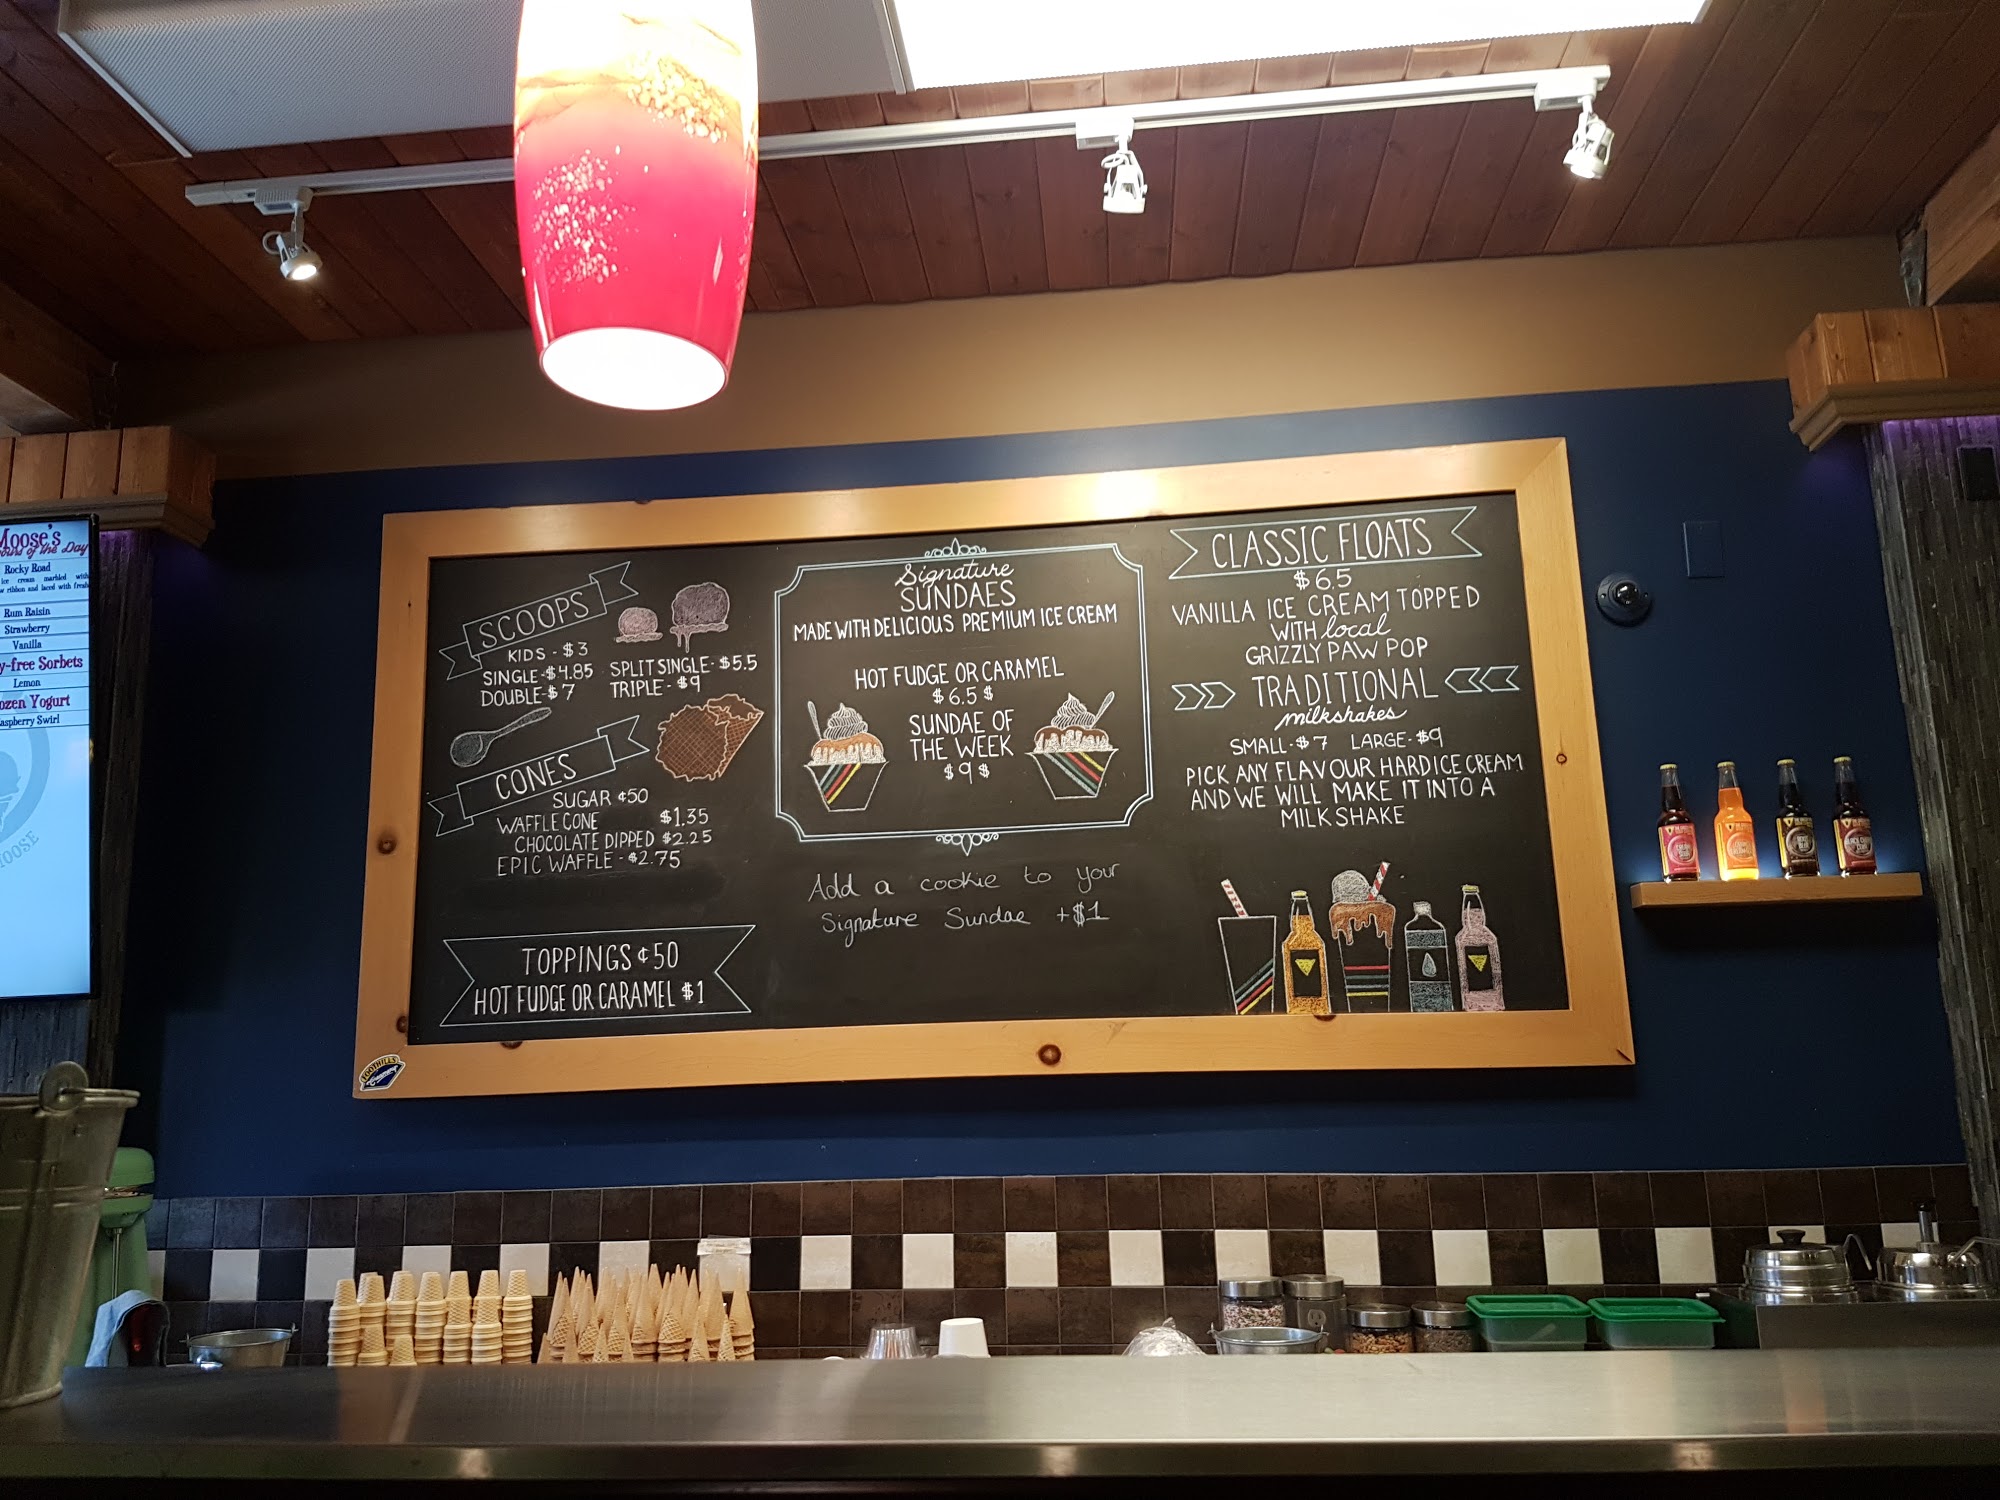 Moose's
of the Day
Rocky Road
ice cream marbled with
ribbon and laced with fresh
Rum Raisin
Strawberry
Vanilla
y-free Sorbets
Lemon
ozen Yogurt
aspberry Swirl
OOSE
SCOOPS
KIDS - $3
SINGLE - $4.85
DOUBLE - $7
SPLIT SINGLE - $5.5
TRIPLE - $9
CONES
SUGAR ¢50
WAFFLE CONE $1.35
CHOCOLATE DIPPED $2.25
EPIC WAFFLE - $2.75
TOPPINGS ¢50
HOT FUDGE OR CARAMEL $1
Signature
SUNDAES
MADE WITH DELICIOUS PREMIUM ICE CREAM
HOT FUDGE OR CARAMEL
$6.5$
SUNDAE OF
THE WEEK
$9$
Add a cookie to your
Signature Sundae +$1
CLASSIC FLOATS
$6.5
VANILLA ICE CREAM TOPPED
WITH local
GRIZZLY PAW POP
TRADITIONAL
milkshakes
SMALL - $7 LARGE - $9
PICK ANY FLAVOUR HARD ICE CREAM
AND WE WILL MAKE IT INTO A
MILKSHAKE